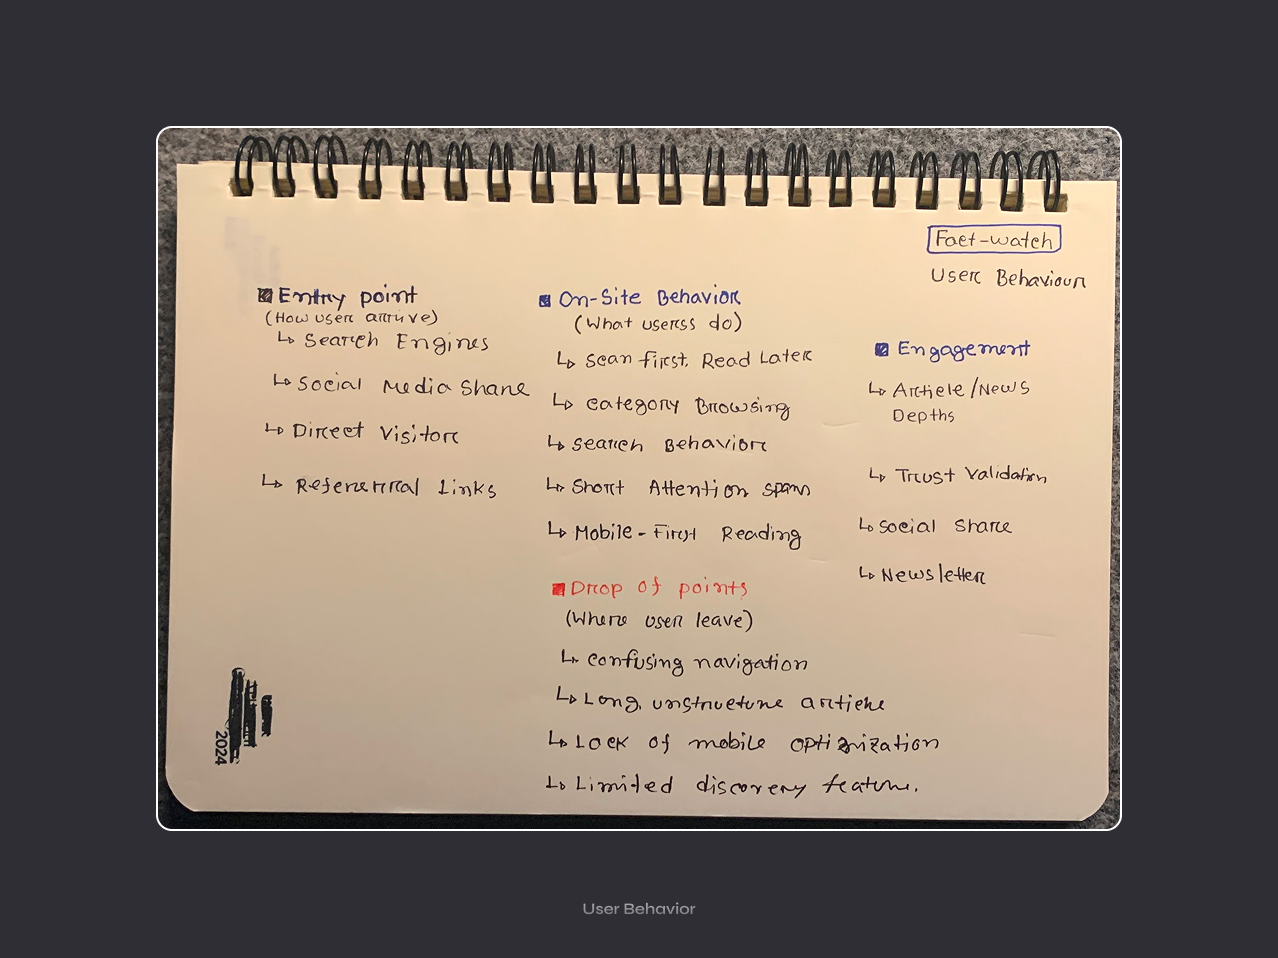 Fact-watch
User Behaviour
Entry point
(How user arrive)
↳ Search Engines
↳ Social Media Share
↳ Direct Visitor
↳ Referrral Links
On-Site Behavior
(What userss do)
↳ Scan first, Read Later
↳ Category Browsing
↳ Search Behavior
↳ Short Attention span
↳ Mobile-First Reading
Drop of points
(Where user leave)
↳ Confusing navigation
↳ Long, unstructure article
↳ Lock of mobile optimization
↳ Limited discovery feature.
Engagement
↳ Article/News
Depths
↳ Trust Validation
↳ Social Share
↳ Newsletter
2024
User Behavior